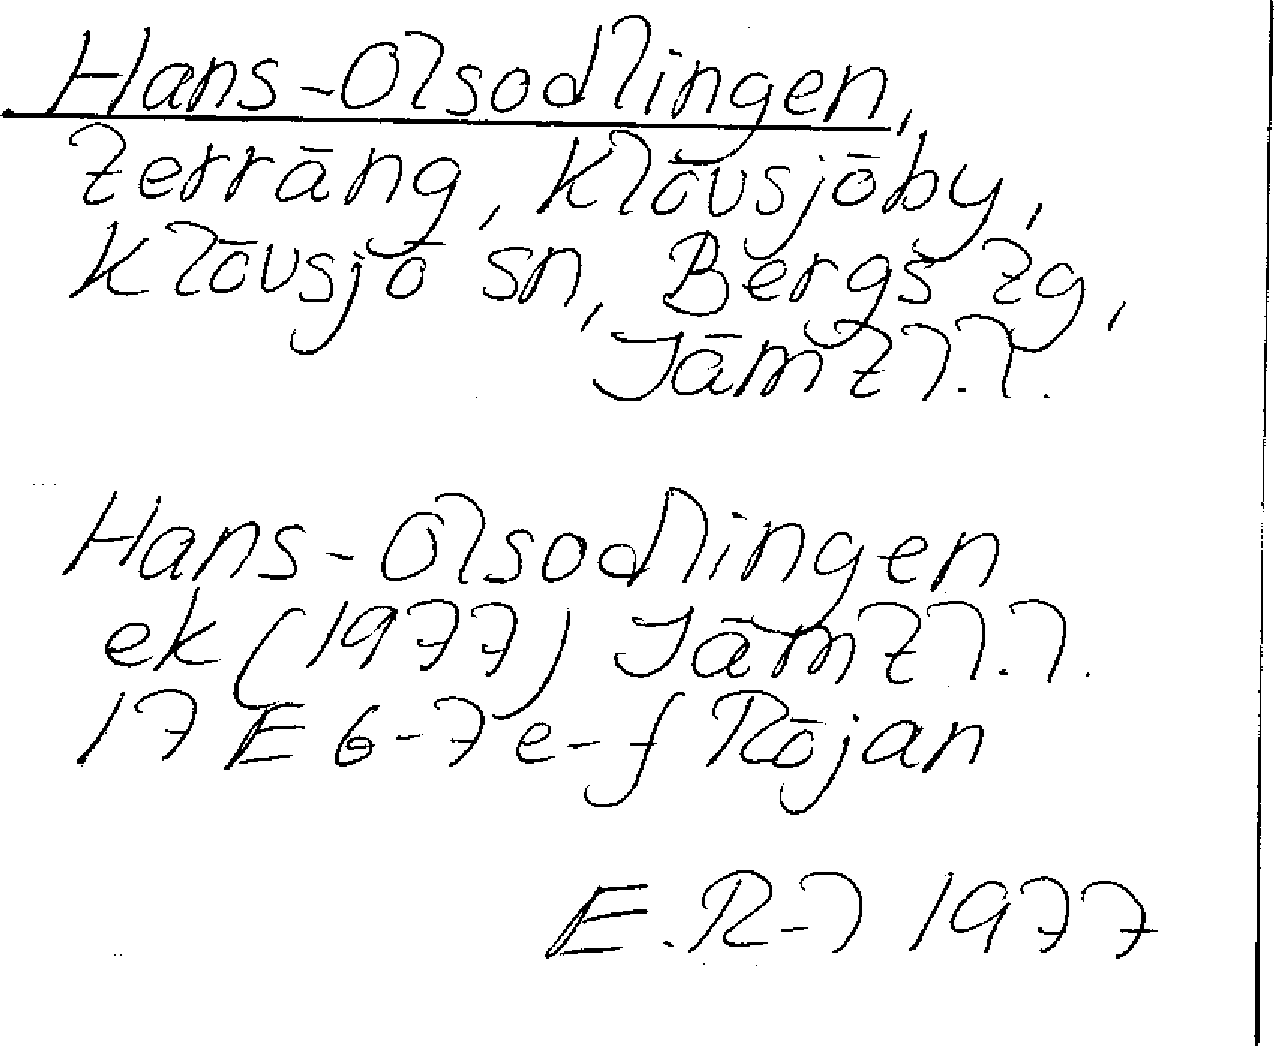 Hans-Olsodlingen,
terräng, Klövsjöby,
Klövsjö sn, Bergs tg,
Jämtl.l.
Hans-Olsodlingen
ek (1977) Jämtl.l.
17 E 6-7 e-f Röjan
E.R-l 1977